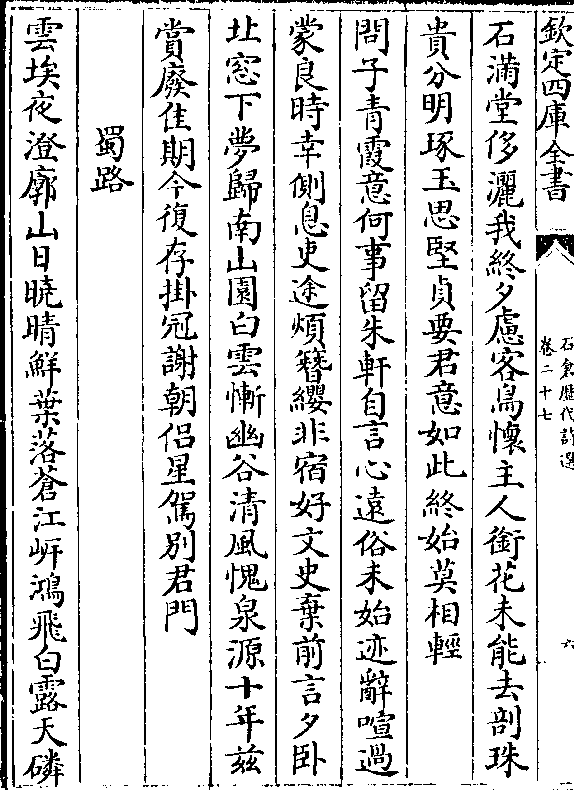 欽定四庫全書
石倉歷代詩選
卷二十七
六
石滿堂侈灑我終夕慮客鳥懷主人銜花未能去剖珠
貴分明琢玉思堅貞要君意如此終始莫相輕
問子青霞意何事留朱軒自言心遠俗未始迹辭喧過
蒙良時幸側息吏途煩簪纓非宿好文史棄前言夕卧
北窓下夢歸南山園白雲慚幽谷清風愧泉源十年兹
賞廢佳期今復存掛冠謝朝侣星駕别君門
蜀路
雲埃夜澄廓山日曉晴鮮葉落蒼江岍鴻飛白露天磷